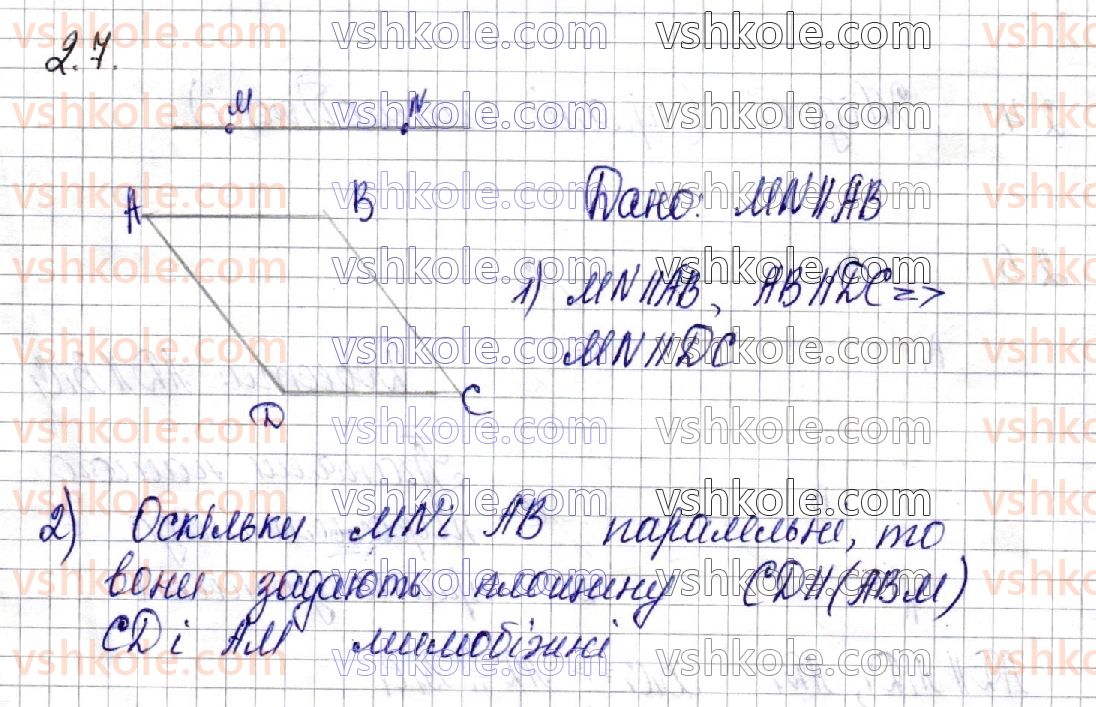 2.7.
M N
A B
Дано: MN||AB
1) MN||AB, AB||DC =>
MN||DC
D C
2) Оскільки MN і AB паралельні, то
вони задають площину CD||(ABM)
CD і AM мимобіжні
vshkole.com